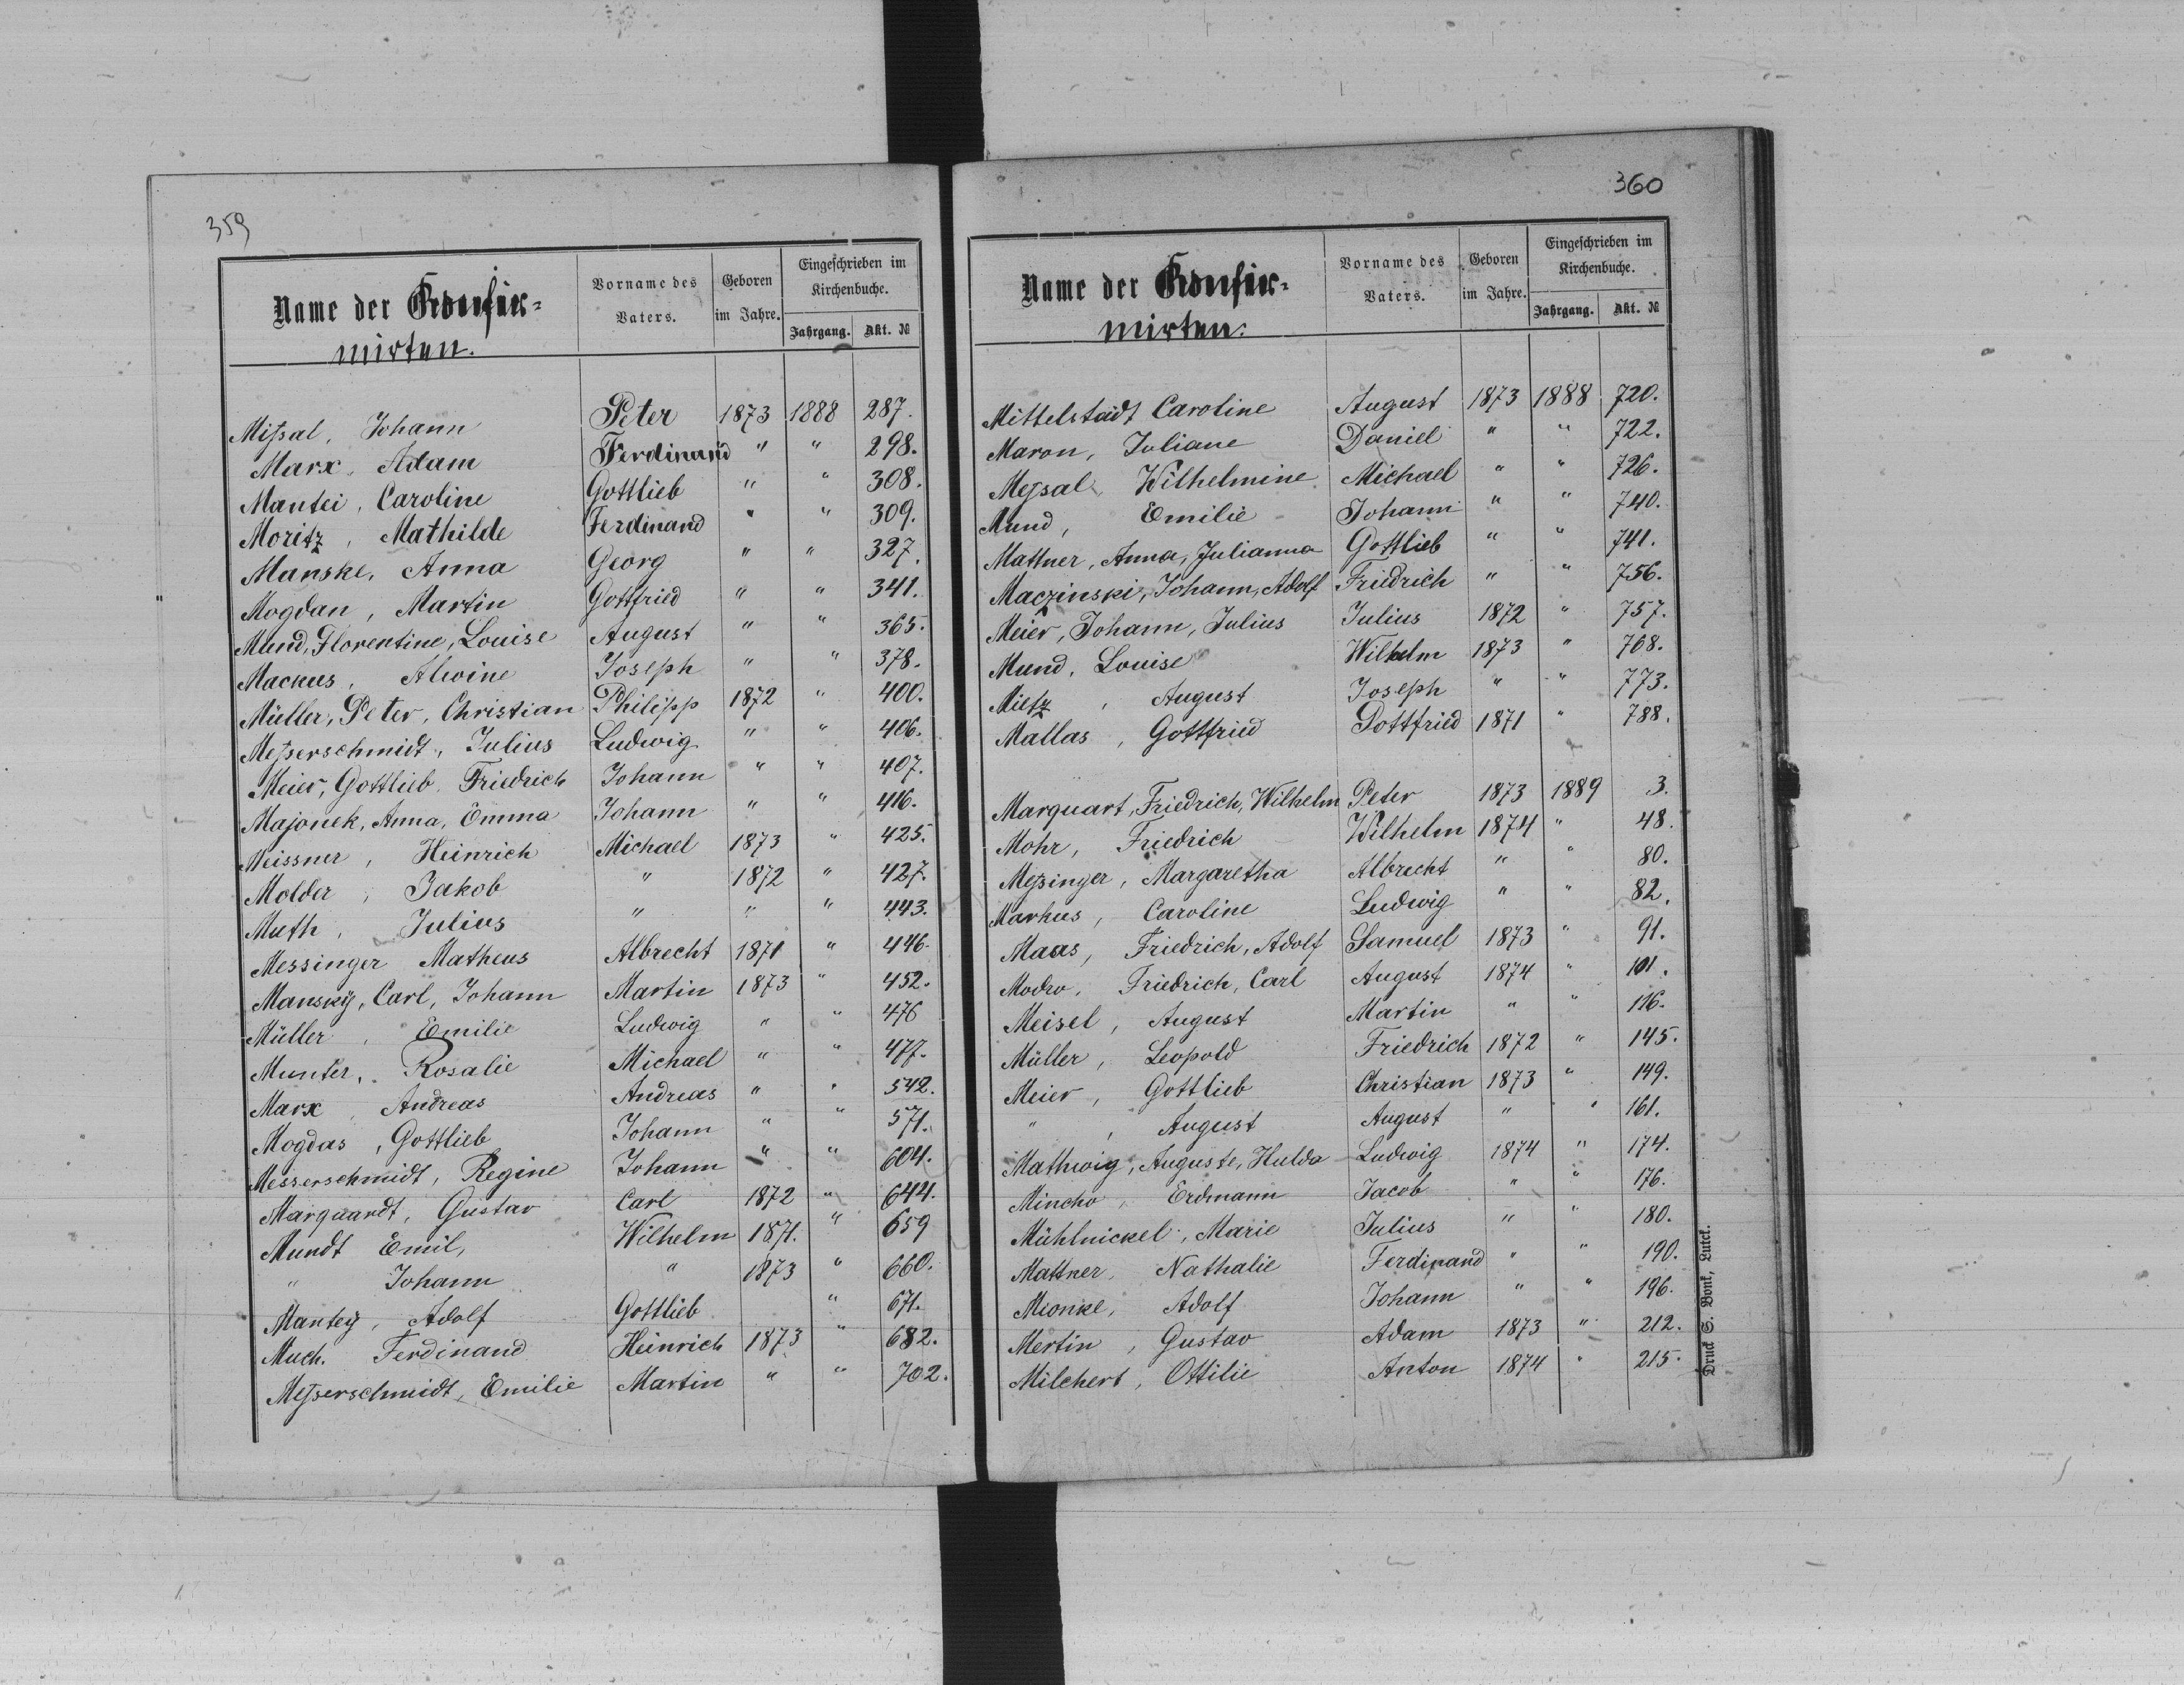 359
Name der Konfir=
mirten.
Vorname des Vaters.
Geboren im Jahre.
Eingeschrieben im Kirchenbuche.
Jahrgang. Akt. №
Mißal, Johann Peter 1873 1888 287.
Marx, Adam Ferdinand " " 298.
Mantei, Caroline Gottlieb " " 308.
Moritz, Mathilde Ferdinand " " 309.
Manske, Anna Georg " " 327.
Mogdan, Martin Gottfried " " 341.
Mund, Florentine, Louise August " " 365.
Mackus, Alwine Joseph " " 378.
Müller, Peter, Christian Philipp 1872 " 400.
Meßerschmidt, Julius Ludwig " " 406.
Meier, Gottlieb, Friedrich Johann " " 407.
Majonek, Anna, Emma Johann " " 416.
Meissner, Heinrich Michael 1873 " 425.
Molder, Jakob " 1872 " 427.
Muth, Julius " " " 443.
Messinger Matheus Albrecht 1871 " 446.
Mansky, Carl, Johann Martin 1873 " 452.
Müller, Emilie Ludwig " " 476
Munter, Rosalie Michael " " 477.
Marx, Andreas Andreas " " 542.
Mogdas, Gottlieb Johann " " 571.
Messerschmidt, Regine Johann " " 604.
Marquardt, Gustav Carl 1872 " 644.
Mundt Emil, Wilhelm 1871. " 659
" Johann " 1873 " 660.
Mantey, Adolf Gottlieb " 671.
Much. Ferdinand Heinrich 1873 " 682.
Meßerschmidt, Emilie Martin " " 702.
360
Name der Konfir=
mirten.
Vorname des Vaters.
Geboren im Jahre.
Eingeschrieben im Kirchenbuche.
Jahrgang. Akt. №
Mittelstädt Caroline August 1873 1888 720.
Maron, Juliane Daniel " " 722.
Meßal, Wilhelmine Michael " " 726.
Mund, Emilie Johann " " 740.
Mattner, Anna, Julianna Gottlieb " " 741.
Maczinski, Johann, Adolf Friedrich " " 756.
Meier, Johann, Julius Julius 1872 " 757.
Mund, Louise Wilhelm 1873 " 768.
Mietz, August Joseph " " 773.
Mallas, Gottfried Gottfried 1871 " 788.
Marquart, Friedrich, Wilhelm Peter 1873 1889 3.
Mohr, Friedrich Wilhelm 1874 " 48.
Meßinger, Margaretha Albrecht " " 80.
Markus, Caroline Ludwig " " 82.
Maas, Friedrich, Adolf Samuel 1873 " 91.
Modro, Friedrich, Carl August 1874 " 101.
Meisel, August Martin " " 116.
Müller, Leopold Friedrich 1872 " 145.
Meier, Gottlieb Christian 1873 " 149.
", August August " " 161.
Mathwig, Auguste, Hulda Ludwig 1874 " 174.
Mincho, Erdmann Jacob " " 176.
Mühlnickel, Marie Julius " " 180.
Mattner, Nathalie Ferdinand " " 190.
Mionke, Adolf Johann " " 196.
Mertin, Gustav Adam 1873 " 212.
Milchert, Ottilie Anton 1874 " 215.
Druck S. Bonk, Lutck.